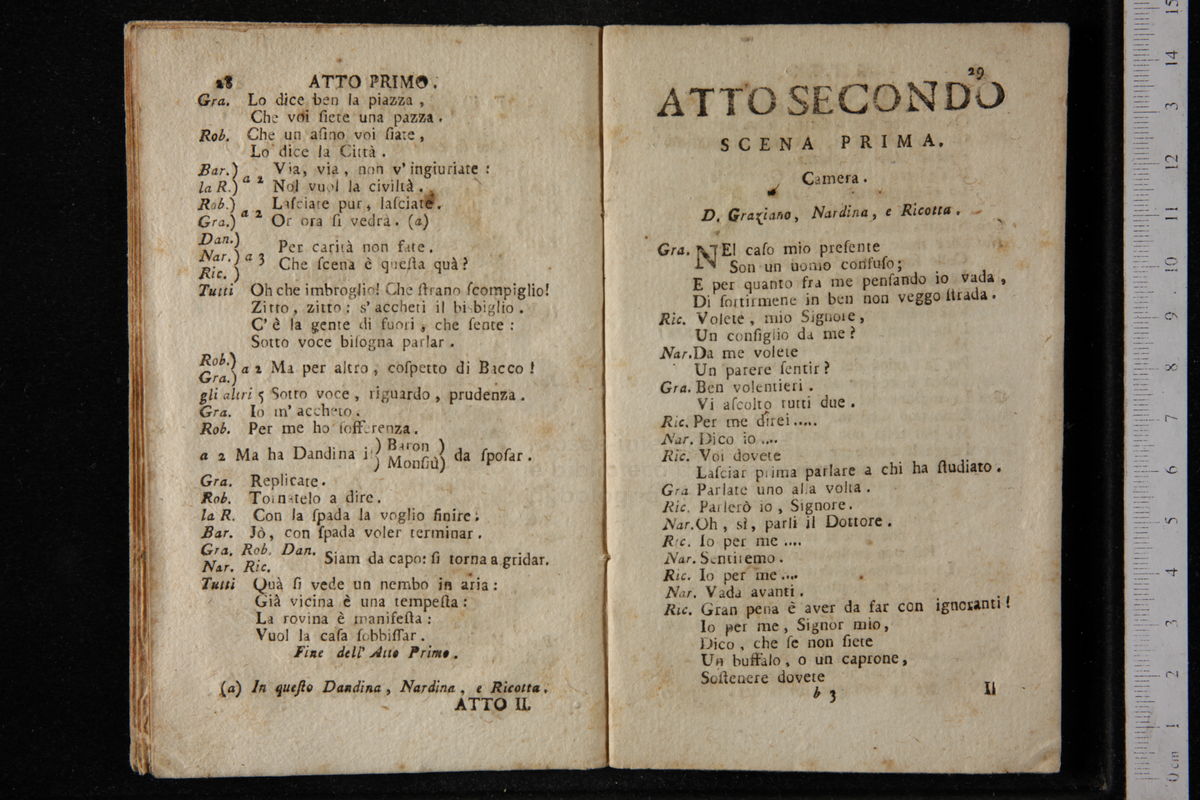 28 ATTO PRIMO.
Gra. Lo dice ben la piazza,
Che voi ſiete una pazza.
Rob. Che un aſino voi ſiate,
Lo dice la Città.
Bar.) a 2 Via, via, non v'ingiuriate:
la R.) Nol vuol la civiltà.
Rob.) a 2 Laſciate pur, laſciate.
Gra.) Or ora ſi vedrà. (a)
Dan.)
Nar.) a 3 Per carità non fate.
Ric.) Che ſcena è queſta quà?
Tutti Oh che imbroglio! Che ſtrano ſcompiglio!
Zitto, zitto: s'accheti il bisbiglio.
C'è la gente di fuori, che ſente:
Sotto voce biſogna parlar.
Rob.) a 2 Ma per altro, coſpetto di Bacco!
Gra.)
gli altri 5 Sotto voce, riguardo, prudenza.
Gra. Io m'accheto.
Rob. Per me ho ſofferenza.
a 2 Ma ha Dandina il) Baron ) da ſpoſar.
) Monſiù)
Gra. Replicate.
Rob. Tornatelo a dire.
la R. Con la ſpada la voglio finire.
Bar. Jò, con ſpada voler terminar.
Gra. Rob. Dan. Siam da capo: ſi torna a gridar.
Nar. Ric.
Tutti Quà ſi vede un nembo in aria:
Già vicina è una tempeſta:
La rovina è manifeſta:
Vuol la caſa ſobbiſſar.
Fine dell' Atto Primo.
(a) In queſto Dandina, Nardina, e Ricotta.
ATTO II.
29
ATTO SECONDO
SCENA PRIMA.
Camera.
D. Graziano, Nardina, e Ricotta.
Gra. NEl caſo mio preſente
Son un uomo confuſo;
E per quanto fra me penſando io vada,
Di ſortirmene in ben non veggo ſtrada.
Ric. Volete, mio Signore,
Un conſiglio da me?
Nar. Da me volete
Un parere ſentir?
Gra. Ben volentieri.
Vi aſcolto tutti due.
Ric. Per me direi.....
Nar. Dico io....
Ric. Voi dovete
Laſciar prima parlare a chi ha ſtudiato.
Gra Parlate uno alla volta.
Ric. Parlerò io, Signore.
Nar. Oh, sì, parli il Dottore.
Ric. Io per me....
Nar. Sentiremo.
Ric. Io per me....
Nar. Vada avanti.
Ric. Gran pena è aver da far con ignoranti!
Io per me, Signor mio,
Dico, che ſe non ſiete
Un buffalo, o un caprone,
Soſtenere dovete
b 3 Il
0 cm 1 2 3 4 5 6 7 8 9 10 11 12 13 14 15